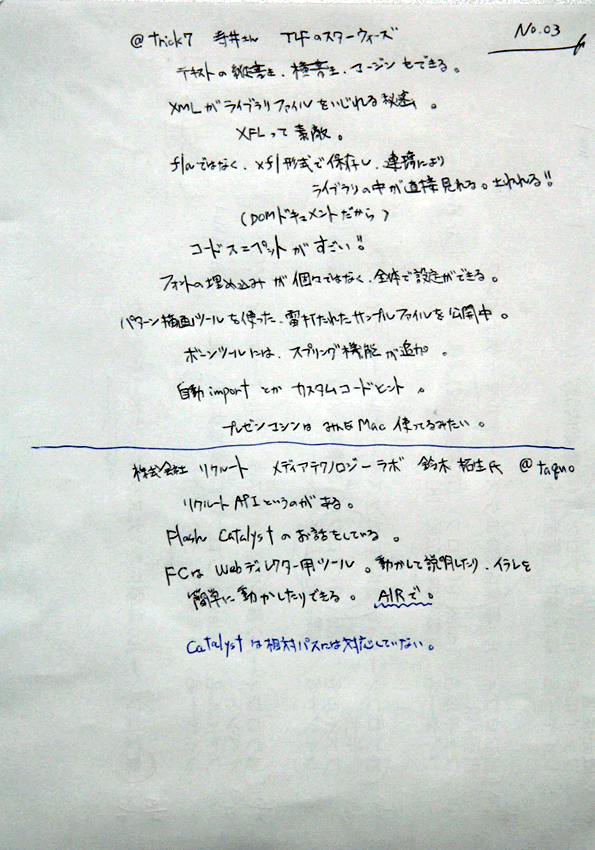 No.03
@trick7 寺井さん TLFのスターウィーズ
テキストの縦書き、横書き、マージンもできる。
XMLがライブラリファイルをいじれる秘密。
XFLって素敵。
flaではなく、xfl形式で保存し、連携により
ライブラリの中が直接見れる。土われる!!
(DOMドキュメントだから)
コードスニペットがすごい!!
フォントの埋め込みが個々ではなく、全体で設定ができる。
パターン描画ツールを使った、雷打たれたサンプルファイルを公開中。
ボーンツールには、スプリング機能が追加。
自動importとかカスタムコードヒント。
プレゼンマシンはみんなMac使ってるみたい。
株式会社 リクルート メディアテクノロジーラボ 鈴木拓生氏 @taquo
リクルートAPIというのがある。
Flash Catalystのお話をしている。
FCはWebディレクター用ツール。動かして説明したり、イラレを
簡単に動かしたりできる。AIRで。
Catalystは相対パスには対応していない。